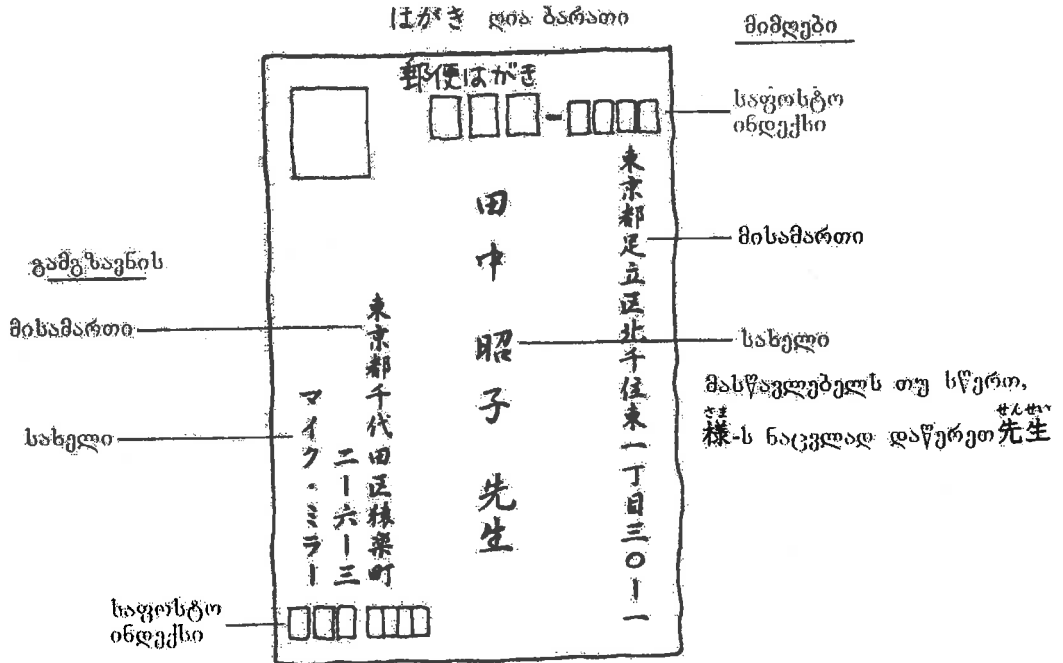 はがき ღია ბარათი
მიმღები
郵便はがき
საფოსტო
ინდექსი
東京都足立区北千住東一丁目三〇ー一
მისამართი
田中 昭子 先生
სახელი
მასწავლებელს თუ სწერთ,
さま せんせい
様-ს ნაცვლად დაწერეთ 先生
გამგზავნის
მისამართი
東京都千代田区猿楽町
二ー六ー三
სახელი
マイク・ミラー
საფოსტო
ინდექსი